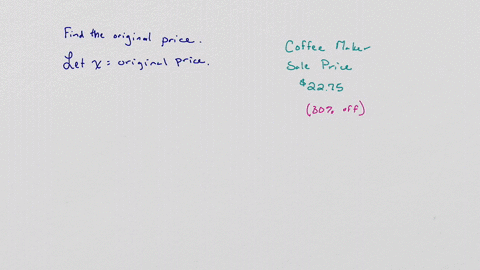 Find the original price.
Let x = original price.
Coffee Maker
Sale Price
$22.75
(30% off)